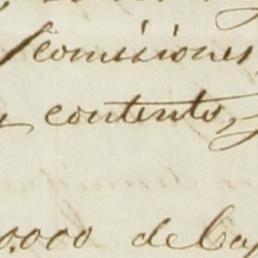 comisiones
contento,
0.000 de Ca